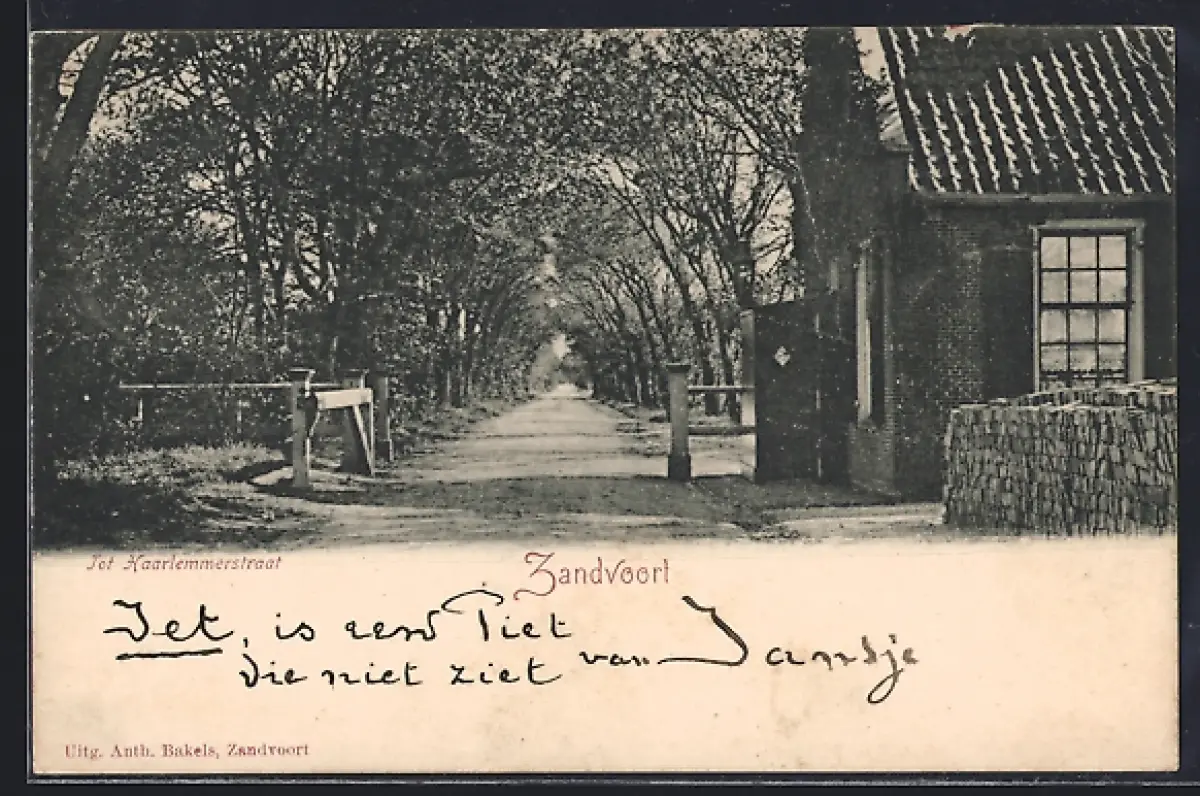 Tot Haarlemmerstraat
Zandvoort
Jet, is een Piet
die niet ziet van Jansje
Uitg. Anth. Bakels, Zandvoort